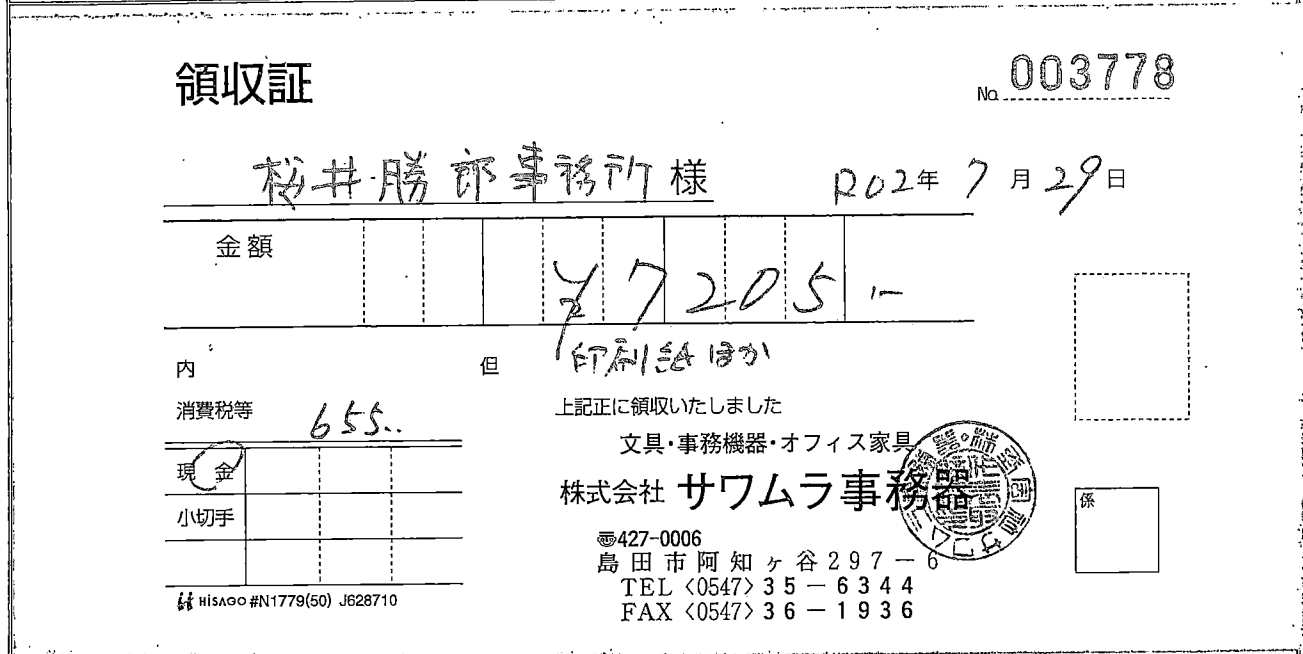 領収証
No. 003778
桜井勝郎事務所 様
R02年 7月 29日
金額
¥7205.-
内
但 印刷紙ほか
消費税等 655..
上記正に領収いたしました
現金
小切手
文具・事務機器・オフィス家具
株式会社 サワムラ事務器
〠427-0006
島田市阿知ヶ谷297－6
TEL〈0547〉35－6344
FAX〈0547〉36－1936
係
HISAGO #N1779(50) J628710